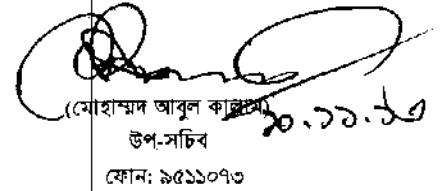 (মোহাম্মদ আবুল কালাম)
উপ-সচিব
ফোন: ৯৫১১০৭৩